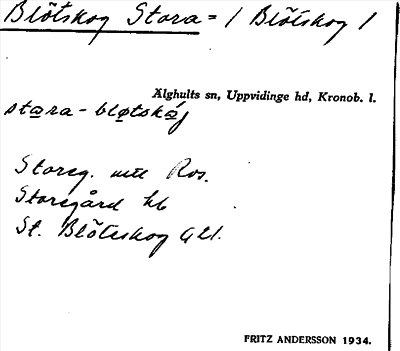 Blötskog Stora = / Blötskog 1
Älghults sn, Uppvidinge hd, Kronob. l.
stara - bløtskåj
Storeg. utt Ros.
Storegård hb
St. Blötskog GU.
FRITZ ANDERSSON 1934.